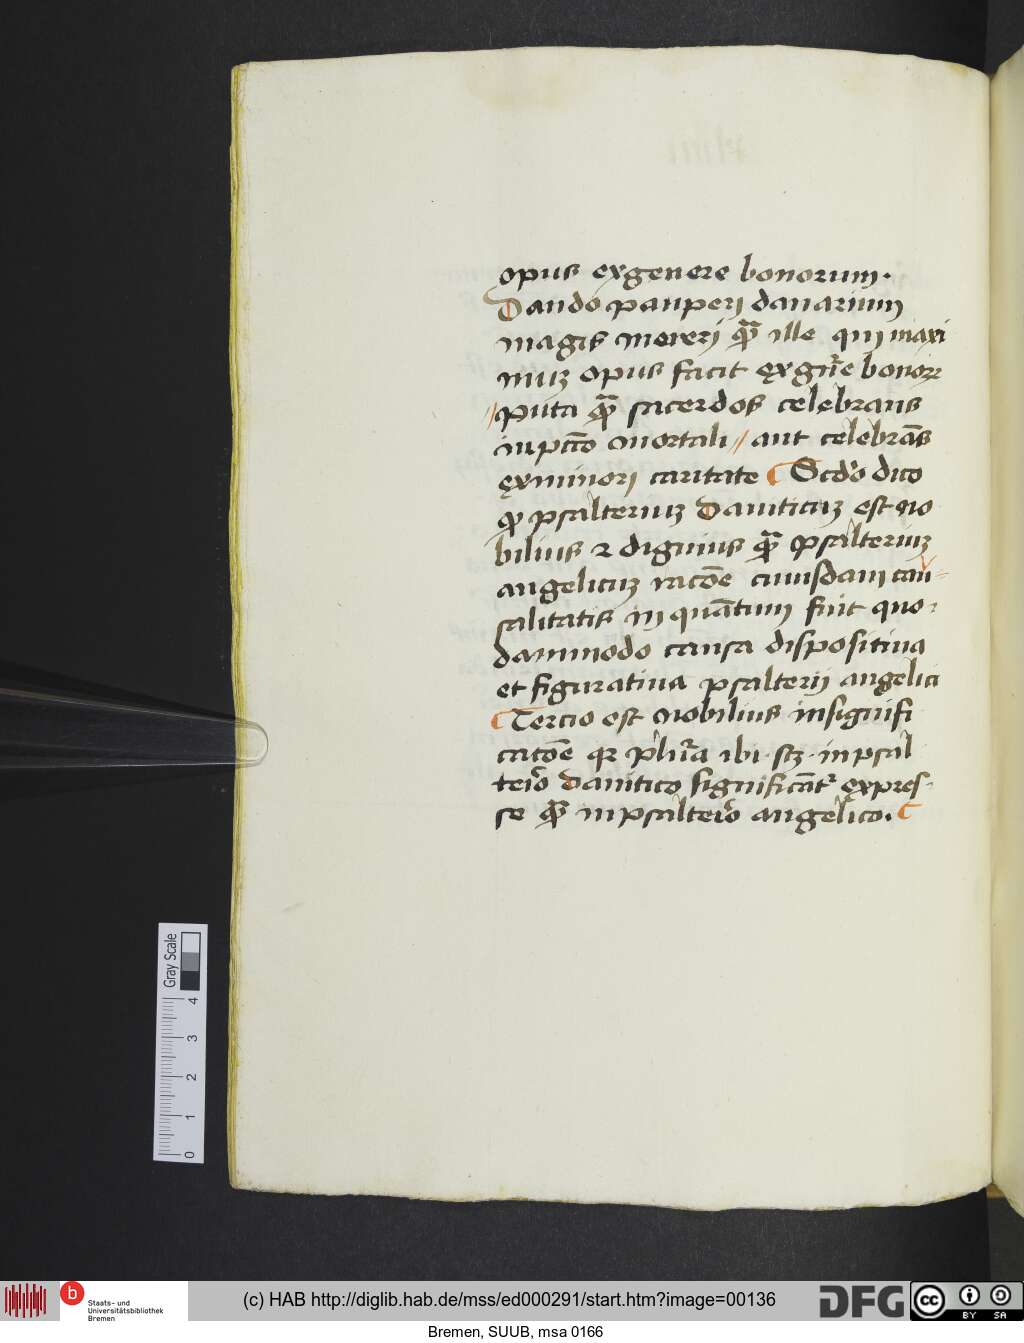 opus exgenere bonorum.
Dando pauperi danarium
magis mereri qua̅ ille qui maxi
muz opus facit ex gn̅e bonoꝝ
puta qua̅ sacerdos celebrans
in pcc̅o mortali // aut celebra̅s
ex minori caritate Scd̅o dico
ꝙ psalteriuz Dauiticuz est no
bilius ⁊ dignius qua̅ psalteriuz
angelicuz racōe cuiusdam cau
salitatis in qua̅tum fuit quo
dammodo causa dispositiua
et figuratiua psalterij angelici
Tercio est nobilius in signifi
catōe qꝛ pl̅ira ibi scz in psal
teri̅o Dauitico significa̅tr expres
se qua̅ in psalteri̅o angelico.
Gray Scale
0 1 2 3 4
b
Staats- und
Universitätsbibliothek
Bremen
(c) HAB http://diglib.hab.de/mss/ed000291/start.htm?image=00136
DFG
cc
BY SA
Bremen, SUUB, msa 0166